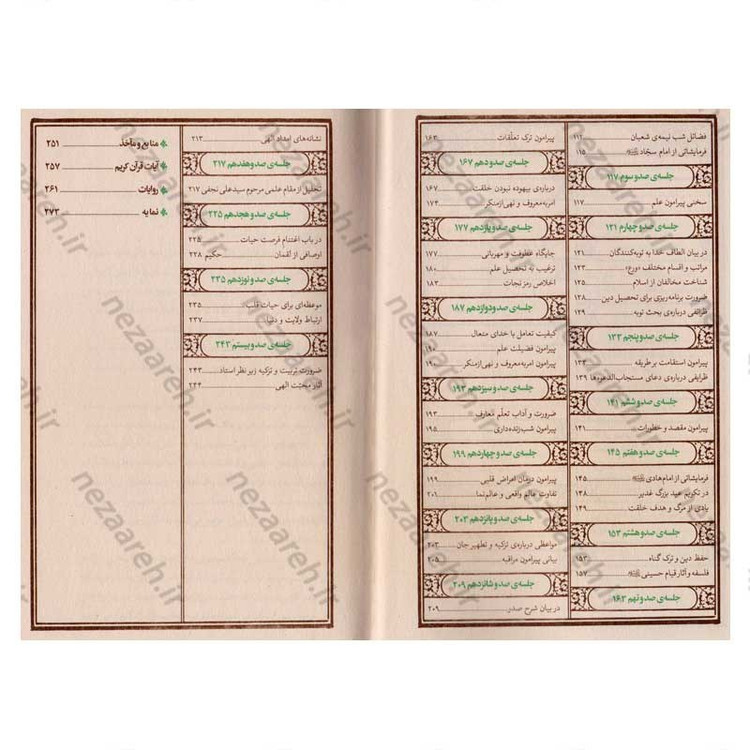 فضائل شب نیمه‌ی شعبان ۱۱۲
فرمایشاتی از امام سجّاد ۱۱۵
جلسه‌ی صد و سوم ۱۱۷
سخنی پیرامون علم ۱۱۷
جلسه‌ی صد و چهارم ۱۲۱
در بیان الطاف خدا به توبه‌کنندگان ۱۲۱
مراتب و اقسام مختلف «ورع» ۱۲۳
شناخت مخالفان از اسلام ۱۲۵
ضرورت برنامه‌ریزی برای تحصیل دین ۱۲۸
ظرائفی درباره‌ی بحث توبه ۱۲۹
جلسه‌ی صد و پنجم ۱۳۳
پیرامون استقامت بر طریقه ۱۳۳
ظرایفی درباره‌ی دعای مستجاب‌الدعوه‌ها ۱۳۹
جلسه‌ی صد و ششم ۱۴۱
پیرامون مقصد و خطورات ۱۴۱
جلسه‌ی صد و هفتم ۱۴۵
فرمایشاتی از امام هادی ۱۴۵
در تکریم عید بزرگ غدیر ۱۴۸
یادی از مرگ و هدف خلقت ۱۴۹
جلسه‌ی صد و هشتم ۱۵۳
حفظ دین و ترک گناه ۱۵۳
فلسفه و آثار قیام حسینی ۱۵۷
جلسه‌ی صد و نهم ۱۶۳
پیرامون ترک تعلّقات ۱۶۳
جلسه‌ی صد و دهم ۱۶۷
درباره‌ی بیهوده نبودن خلقت ۱۶۷
امر به معروف و نهی از منکر ۱۷۴
جلسه‌ی صد و یازدهم ۱۷۷
جایگاه عطوفت و مهربانی ۱۷۷
ترغیب به تحصیل علم ۱۸۰
اخلاص رمز نجات ۱۸۳
جلسه‌ی صد و دوازدهم ۱۸۷
کیفیت تعامل با خدای متعال ۱۸۷
پیرامون فضیلت علم
پیرامون امر به معروف و نهی از منکر
جلسه‌ی صد و سیزدهم ۱۹۳
ضرورت و آداب تعلّم معارف ۱۹۳
پیرامون شب‌زنده‌داری ۱۹۵
جلسه‌ی صد و چهاردهم ۱۹۹
پیرامون درمان امراض قلبی ۱۹۹
تفاوت عالم واقعی و عالم‌نما ۲۰۱
جلسه‌ی صد و پانزدهم ۲۰۳
مواعظی درباره‌ی تزکیه و تطهیر جان ۲۰۳
بیانی پیرامون مراقبه ۲۰۵
جلسه‌ی صد و شانزدهم ۲۰۹
در بیان شرح صدر ۲۰۹
نشانه‌های امداد الهی ۲۱۳
جلسه‌ی صد و هفدهم ۲۱۷
تجلیل از مقام علمی مرحوم سیدعلی نجفی ۲۱۷
جلسه‌ی صد و هجدهم ۲۲۵
در باب اغتنام فرصت حیات ۲۲۵
اوصافی از لُقمان حکیم ۲۲۸
جلسه‌ی صد و نوزدهم ۲۳۵
موعظه‌ای برای حیات قلب ۲۳۵
ارتباط ولایت و دنیا ۲۳۷
جلسه‌ی صد و بیستم ۲۴۳
ضرورت تربیت و تزکیه زیر نظر استاد ۲۴۳
آثار محبّت الهی ۲۴۴
منابع و مآخذ ۲۵۱
آیات قرآن کریم ۲۵۷
روایات ۲۶۱
نمایه ۲۷۳
nezaareh.ir